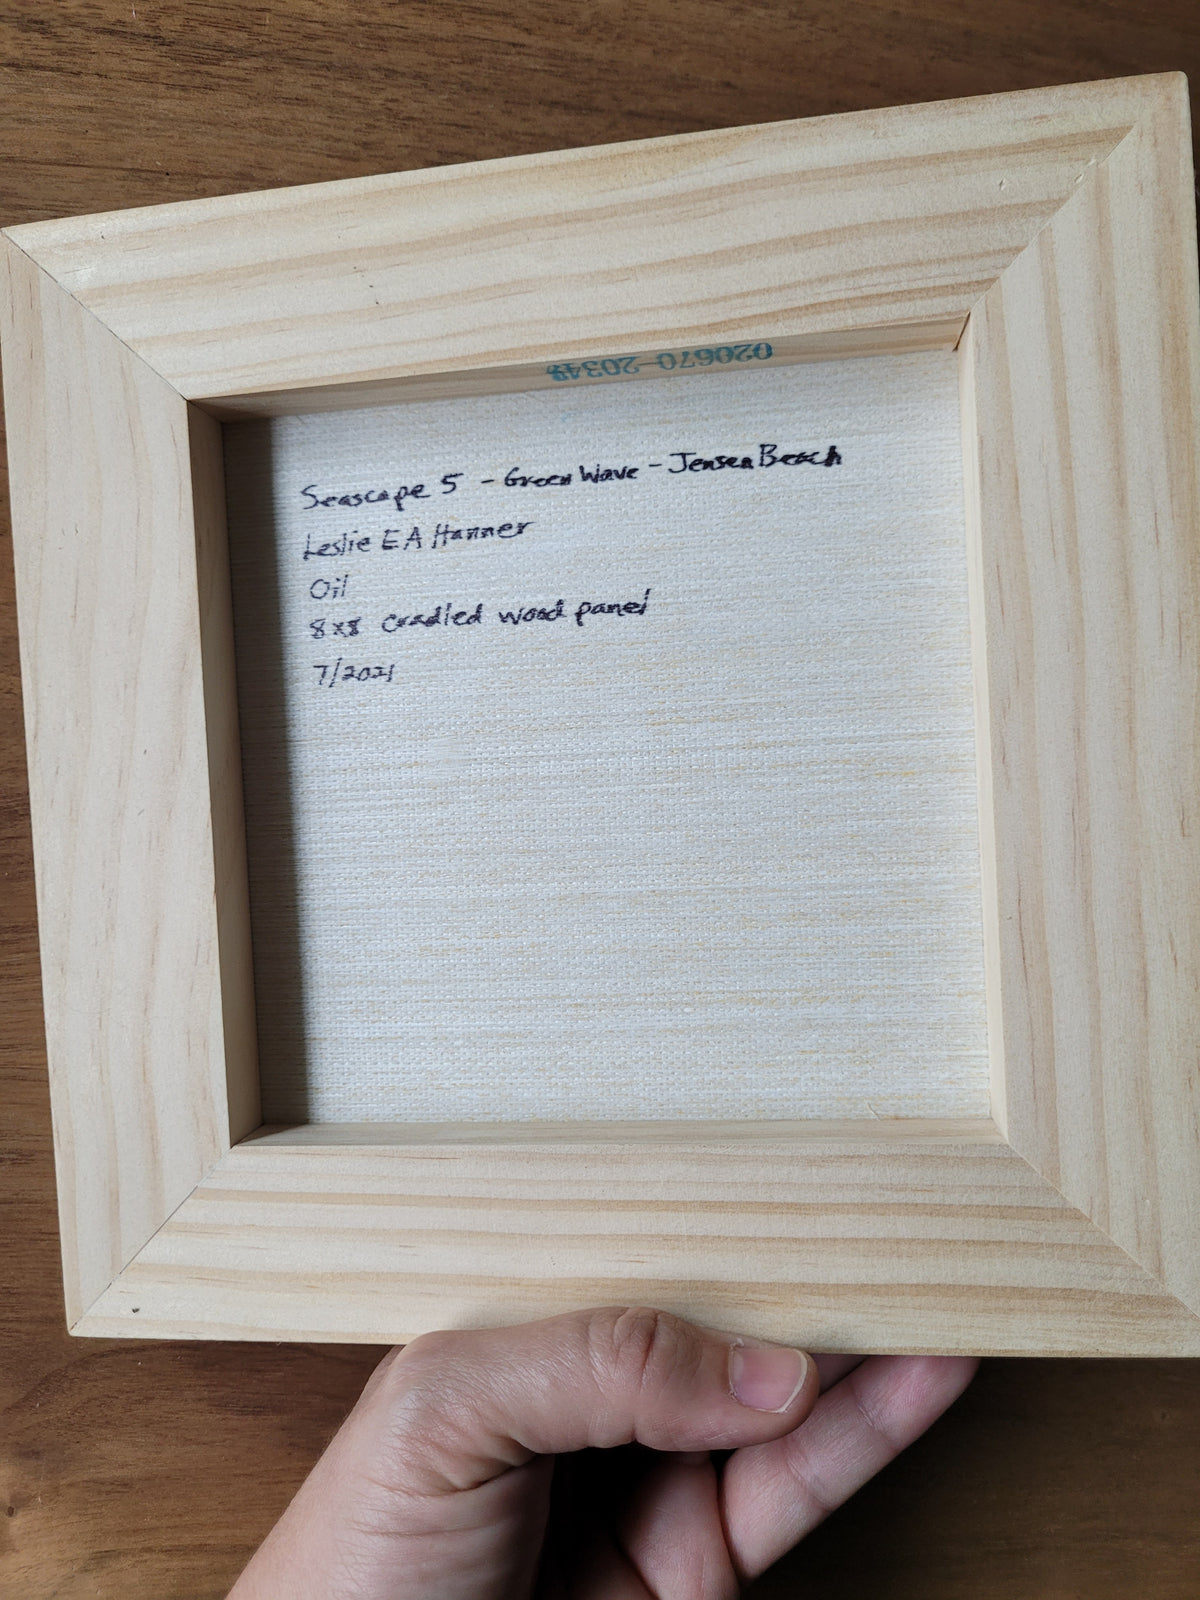 020670 20349
Seascape 5 - Green Wave - Jensen Beach
Leslie E A Hanner
Oil
8x8 cradled wood panel
7/2021